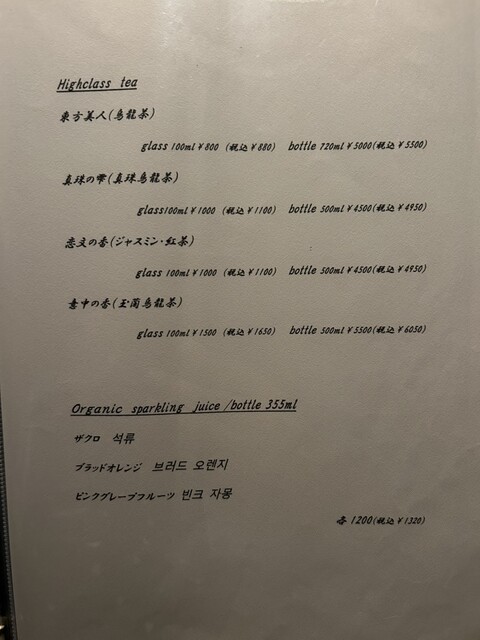 Highclass tea
東方美人(烏龍茶)
glass 100ml ¥800 (税込 ¥880) bottle 720ml ¥5000(税込 ¥5500)
真珠の雫(真珠烏龍茶)
glass100ml ¥1000 (税込 ¥1100) bottle 500ml ¥4500(税込 ¥4950)
恋文の香(ジャスミン・紅茶)
glass 100ml ¥1000 (税込 ¥1100) bottle 500ml ¥4500(税込 ¥4950)
意中の香(玉蘭烏龍茶)
glass 100ml ¥1500 (税込 ¥1650) bottle 500ml ¥5500(税込 ¥6050)
Organic sparkling juice /bottle 355ml
ザクロ 석류
ブラッドオレンジ 브러드 오렌지
ピンクグレープフルーツ 빈크 자몽
各 1200(税込 ¥1320)